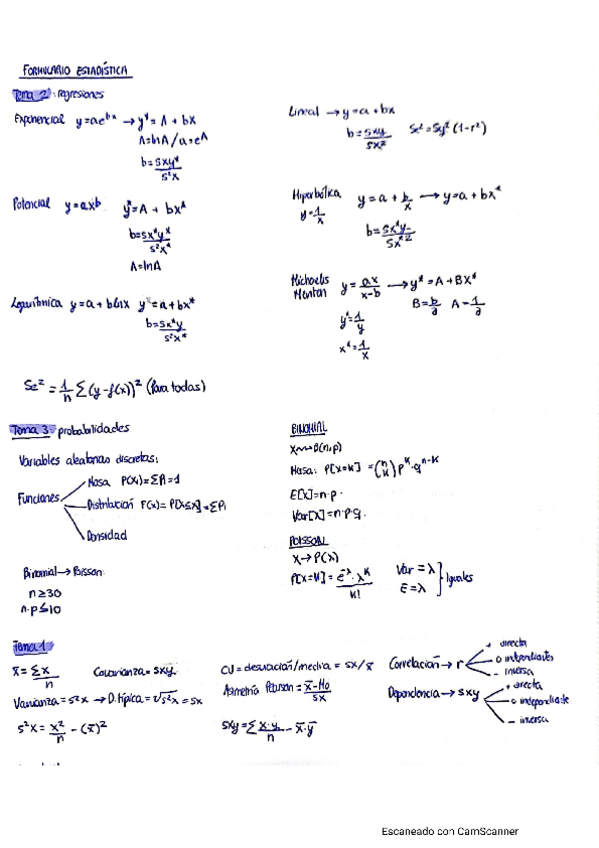 FORMULARIO ESTADÍSTICA
Tema 2: regresiones
Exponencial y=ae^bx → y*= A + bx
A=lnA/a=e^A
b=sxy*/s²x
Potencial y=axb y*=A + bx*
b=sx*y*/s²x*
A=lnA
Logarítmica y=a+blnx y*=a+bx*
b=sx*y/s²x*
Lineal → y=a+bx
b=sxy/sx² Se²=Sy²(1-r²)
Hiperbólica y=a+b/x → y=a+bx*
y=1/x
b=sx*y/sx*2
Michaelis Menten y=ax/x-b → y*=A+BX*
B=b/a A=1/a
y*=1/y
x*=1/x
Se²=1/n Σ(y-f(x))² (Para todas)
Tema 3: probabilidades
Variables aleatorias discretas:
Funciones
Masa P(Xi)=ΣPi=1
Distribución F(x)=P[X≤X]=ΣPi
Densidad
Binomial → Poisson:
n≥30
n·p≤10
BINOMIAL
X~B(n,p)
Masa: P[X=K]=(n K) p^K·q^n-K
E[X]=n·p.
Var[X]=n·p·q.
POISSON
X→P(λ)
P[X=K]=e^-λ·λ^K/K!
Var=λ
E=λ
Iguales
Tema 1
x̄=Σx/n Covarianza=sxy.
Varianza=s²x → D.típica=√s²x=sx
s²x=x²/n-(x̄)²
CV=desviación/media=sx/x̄
Asimetría Pearson=x̄-Mo/sx
sxy=Σx·y/n-x̄·ȳ
Correlación → r
+ directa
0 independientes
- inversa
Dependencia → sxy
+ directa
0 independiente
- inversa
Escaneado con CamScanner